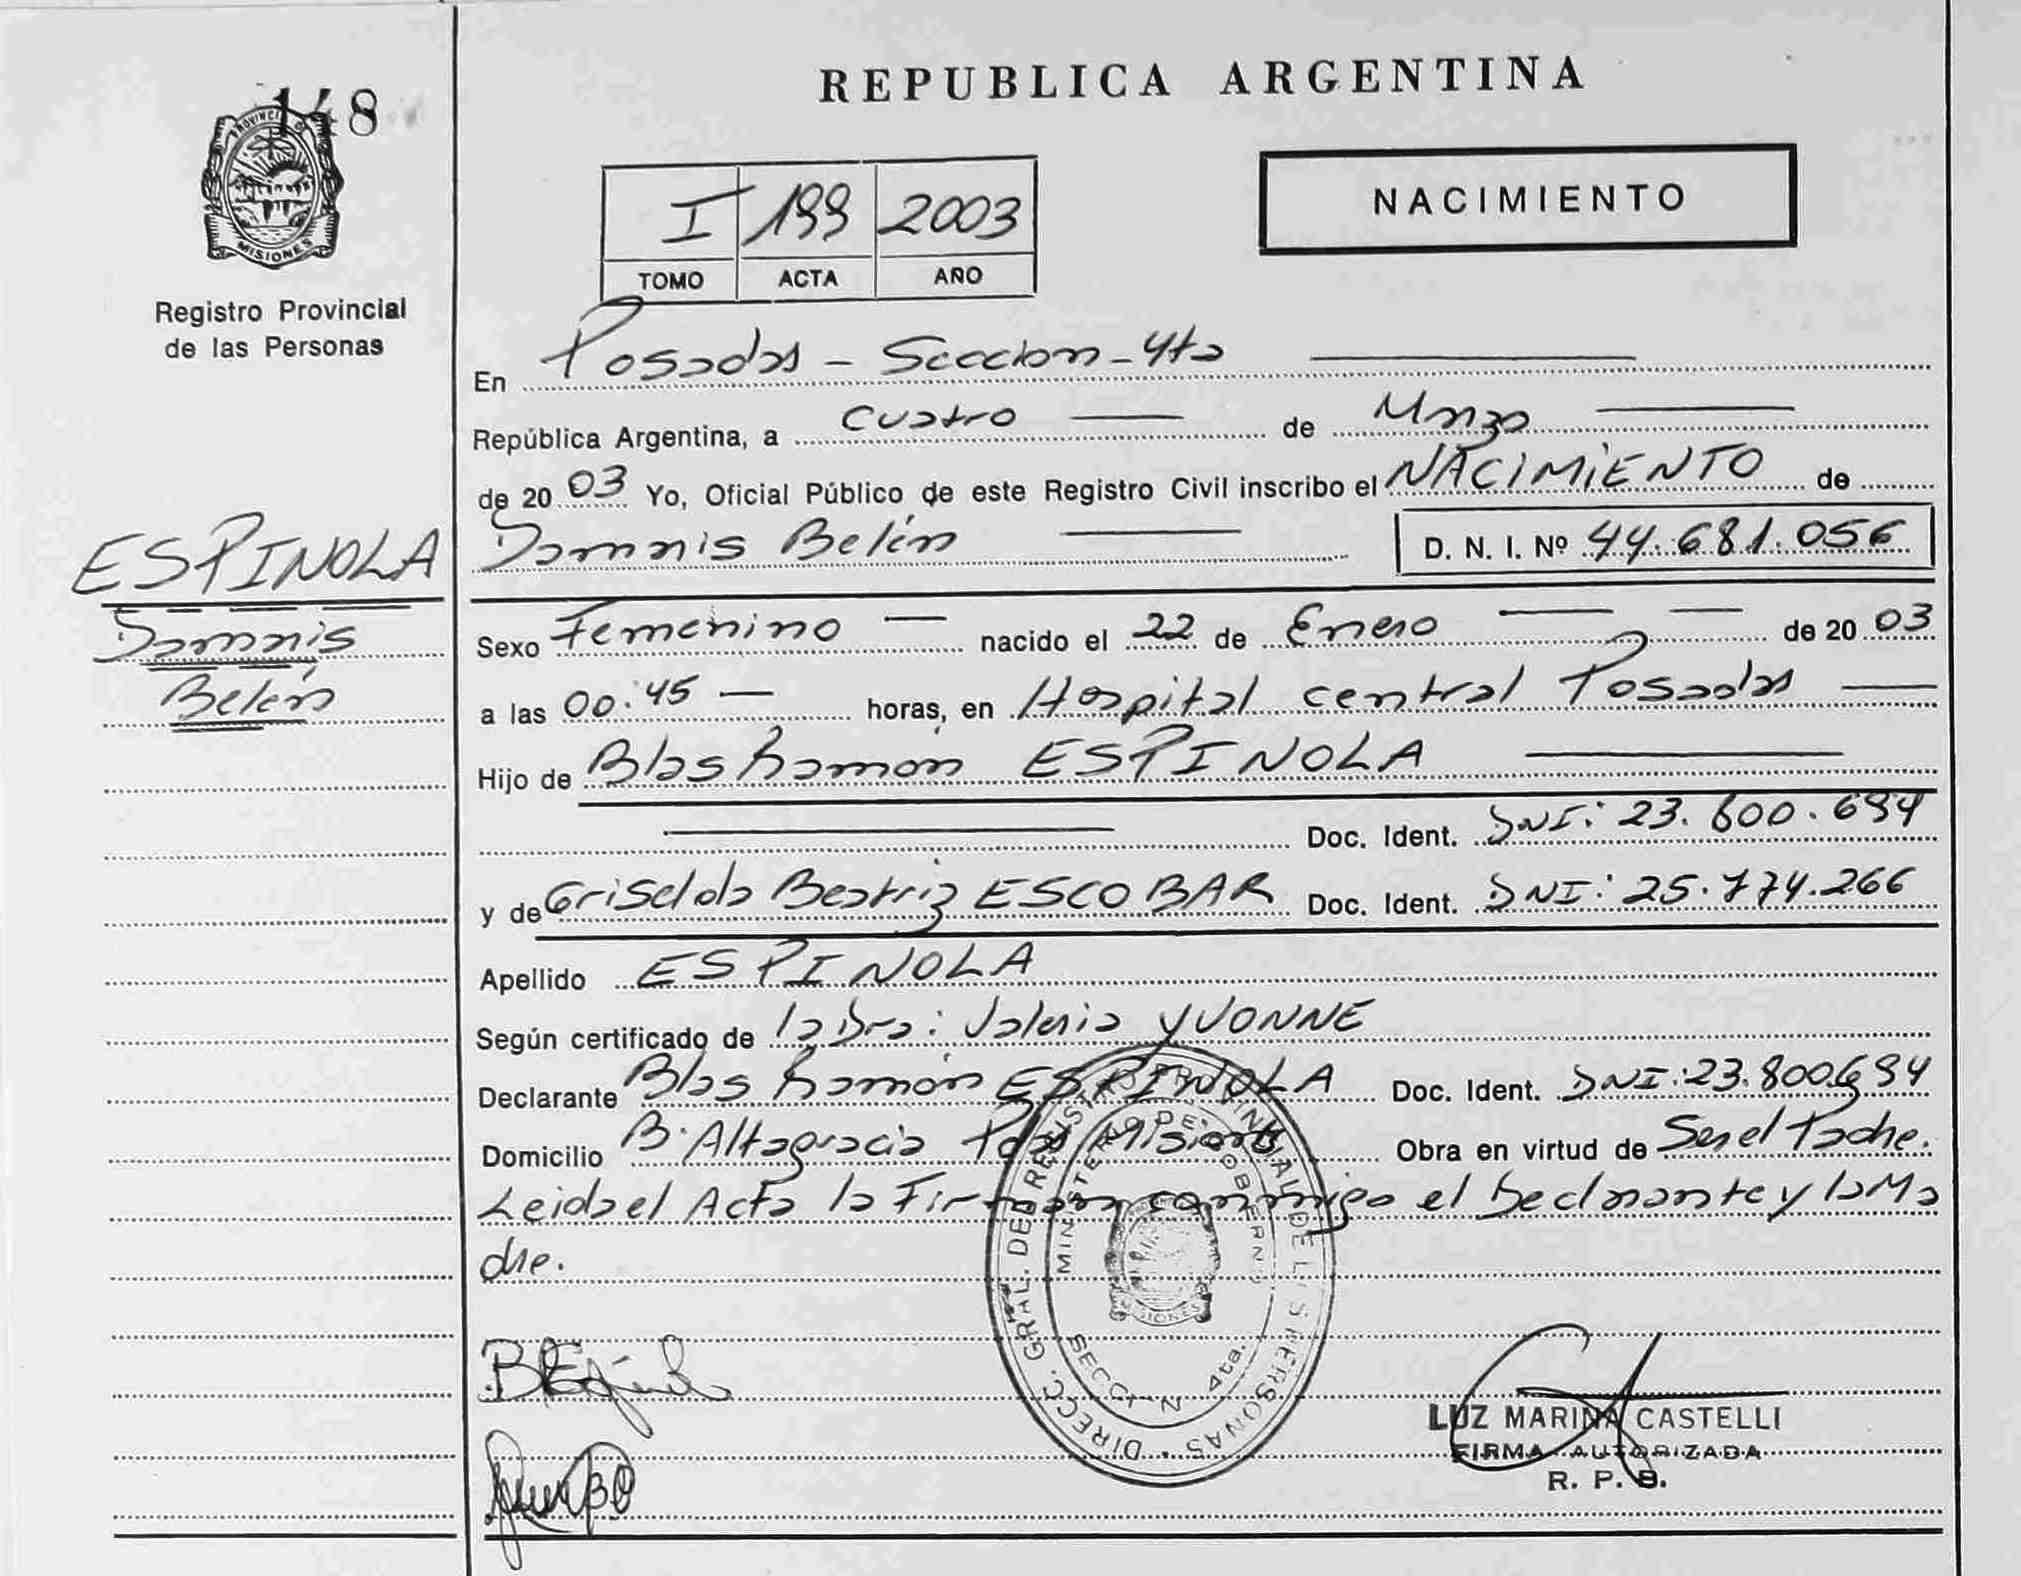 148
PROVINCIA DE
MISIONES
Registro Provincial
de las Personas
ESPINOLA
Damnis
Belén
REPUBLICA ARGENTINA
I 199 2003
TOMO ACTA AÑO
NACIMIENTO
En Posadas - Seccion - 4ta
República Argentina, a cuatro de Marzo
de 20 03 Yo, Oficial Público de este Registro Civil inscribo el NACIMIENTO de
Damnis Belén D. N. I. Nº 44.681.056
Sexo Femenino nacido el 22 de Enero de 20 03
a las 00:45 horas, en Hospital central Posadas
Hijo de Blas Ramón ESPINOLA
Doc. Ident. DNI: 23.800.694
y de Griselda Beatriz ESCOBAR Doc. Ident. DNI: 25.774.266
Apellido ESPINOLA
Según certificado de la Dra: Valeria YVONNE
Declarante Blas Ramón ESPINOLA Doc. Ident. DNI: 23.800.694
Domicilio B. Altagracia Pdas Misiones Obra en virtud de Ser el Padre.
Leida el Acta la Firman conmigo el Declarante y la Ma
dre.
DIRECC. GRAL. DEL REGISTRO PROVINCIAL DE LAS PERSONAS
MINISTERIO DE GOBIERNO
MISIONES
SECCION 4ta.
LUZ MARINA CASTELLI
FIRMA AUTORIZADA
R. P.